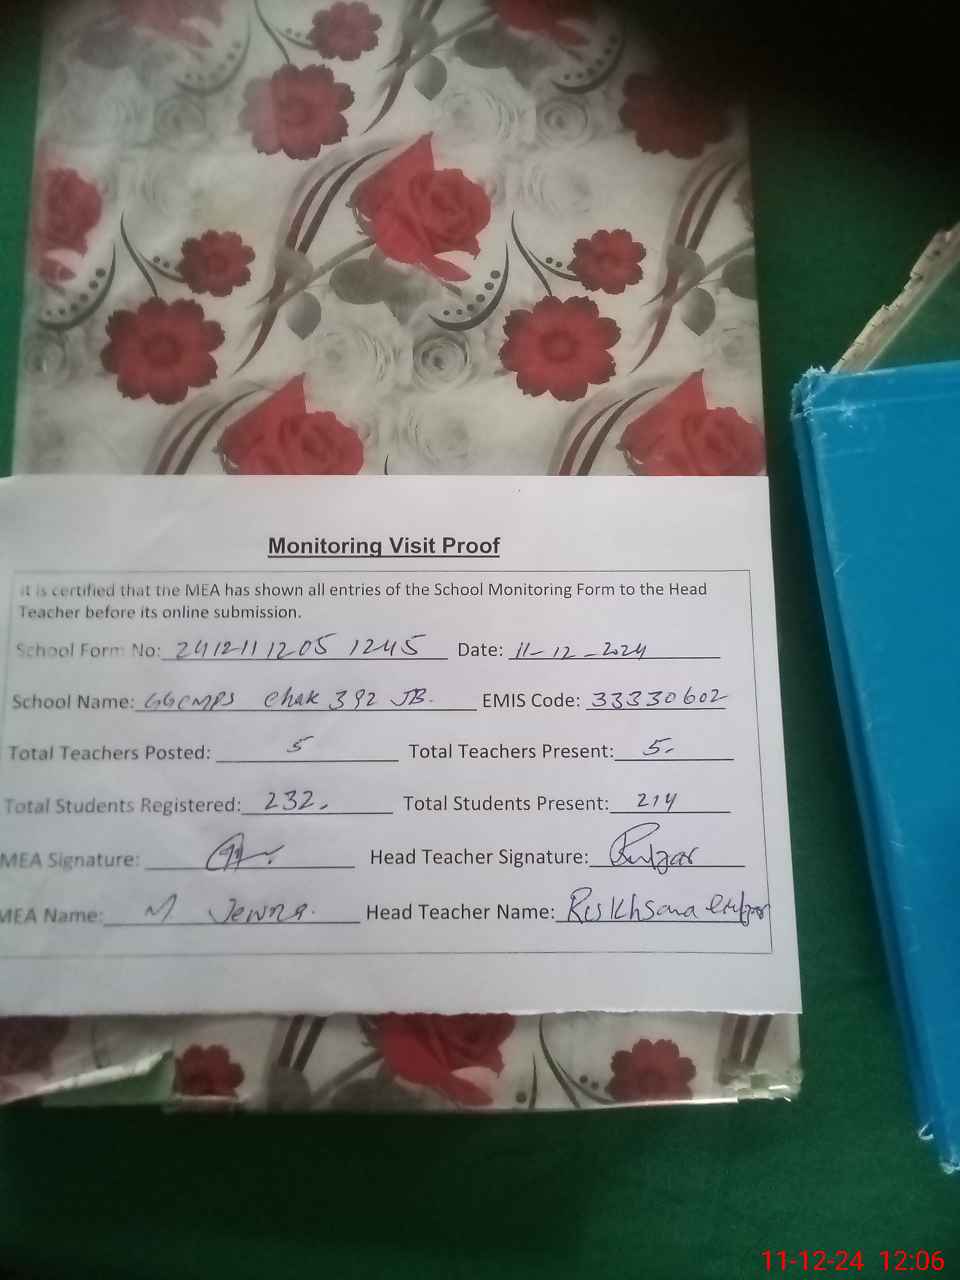 Monitoring Visit Proof
It is certified that the MEA has shown all entries of the School Monitoring Form to the Head
Teacher before its online submission.
School Form No: 241211 1205 1245 Date: 11-12-2024
School Name: GGCMPS Chak 392 JB. EMIS Code: 33330602
Total Teachers Posted: 5 Total Teachers Present: 5.
Total Students Registered: 232. Total Students Present: 214
MEA Signature: Head Teacher Signature:
MEA Name: M Head Teacher Name: Rukhsana
11-12-24 12:06